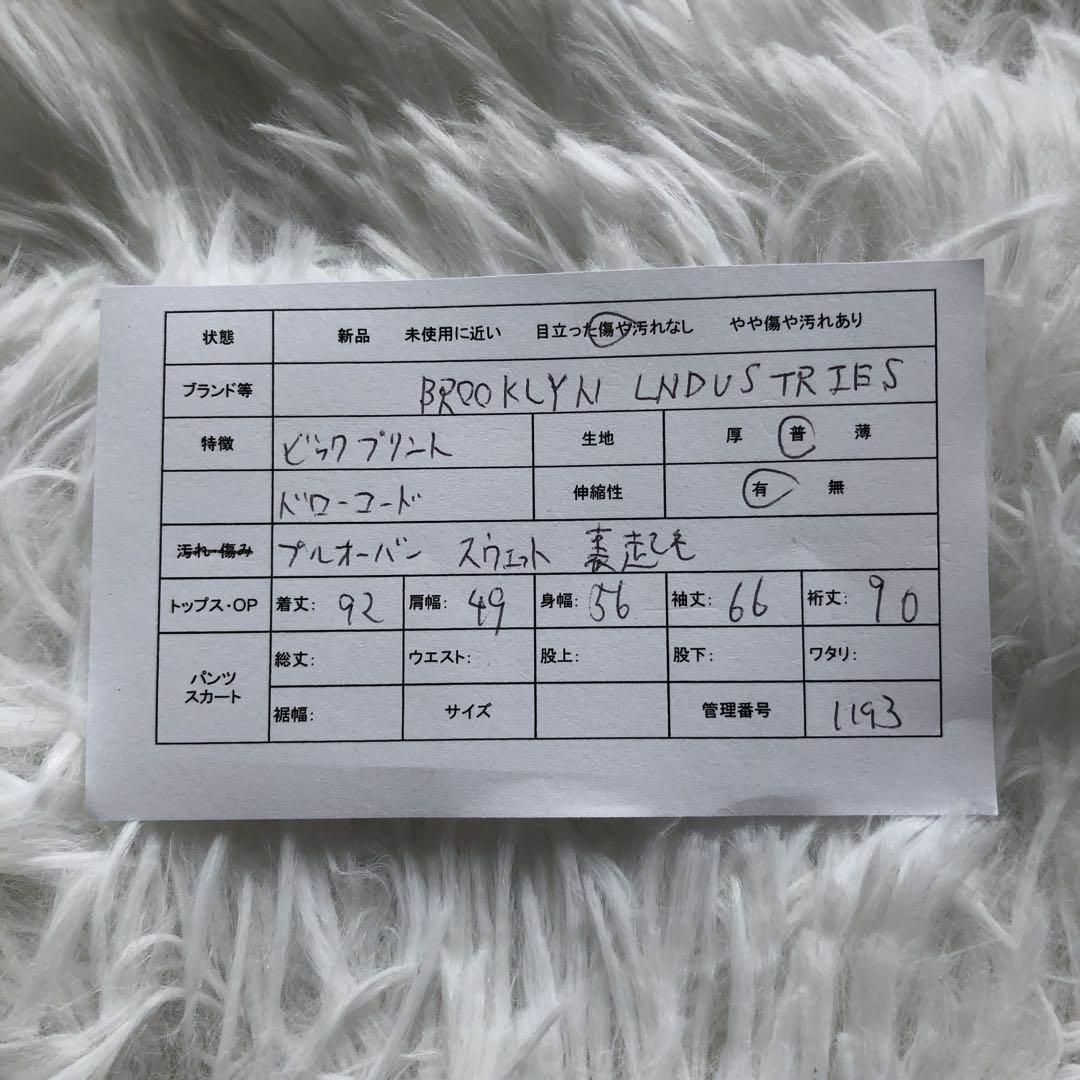 状態 新品 未使用に近い 目立った傷や汚れなし やや傷や汚れあり
ブランド等 BROOKLYN LNDUSTRIES
特徴 ビックプリント 生地 厚 普 薄
ドローコード 伸縮性 有 無
汚れ・傷み プルオーバー スウェット 裏起毛
トップス・OP 着丈: 92 肩幅: 49 身幅: 56 袖丈: 66 裄丈: 90
パンツ スカート 総丈: ウエスト: 股上: 股下: ワタリ:
裾幅: サイズ 管理番号 1193